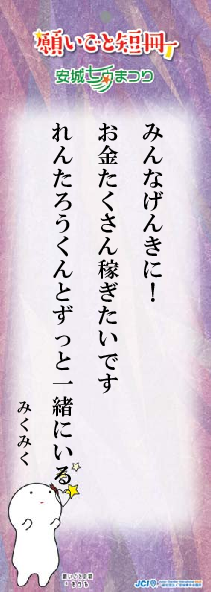 願いごと短冊
安城七夕まつり
みんなげんきに！
お金たくさん稼ぎたいです
れんたろうくんとずっと一緒にいる
みくみく
JCI